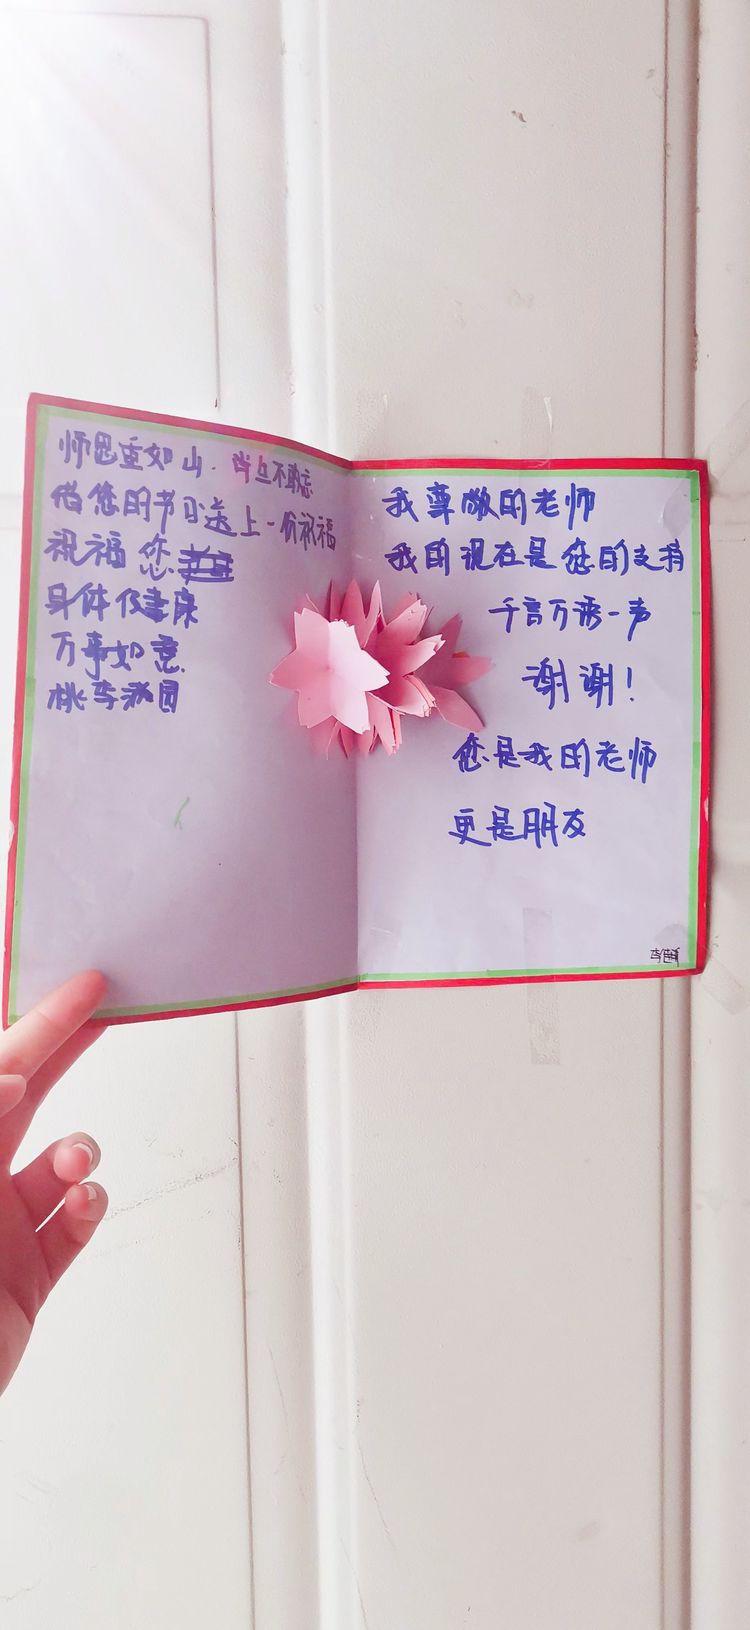 师恩重如山.学生不敢忘
借您的节日送上一份祝福
祝福您
身体健康
万事如意
桃李满园
我尊敬的老师
我的现在是您的支持
千言万语一声
谢谢！
您是我的老师
更是朋友